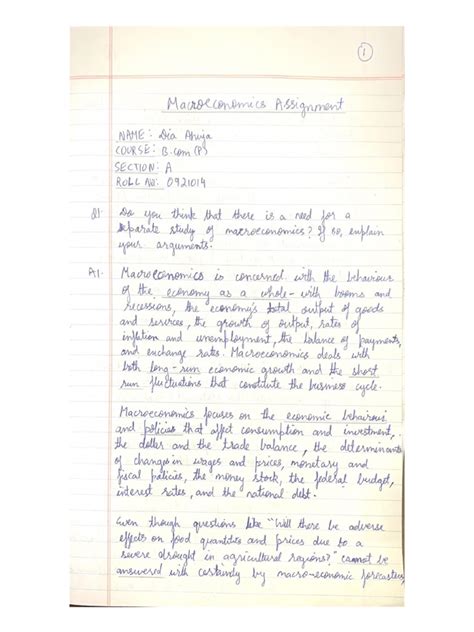 1
Macroeconomics Assignment
NAME: Dia Ahuja
COURSE: B.Com(P)
SECTION: A
ROLL NO: 0921014
Q1 Do you think that there is a need for a
separate study of macroeconomics? If so, explain
your arguments.
A1. Macroeconomics is concerned with the behaviour
of the economy as a whole - with booms and
recessions, the economy's total output of goods
and services, the growth of output, rates of
inflation and unemployment, the balance of payments,
and exchange rates. Macroeconomics deals with
both long-run economic growth and the short
run fluctuations that constitute the business cycle.
Macroeconomics focuses on the economic behaviour
and policies that affect consumption and investment,
the dollar and the trade balance, the determinants
of changes in wages and prices, monetary and
fiscal policies, the money stock, the federal budget,
interest rates, and the national debt.
Even though questions like "Will there be adverse
effects on food quantities and prices due to a
severe drought in agricultural regions?" cannot be
answered with certainty by macro-economic forecasters,